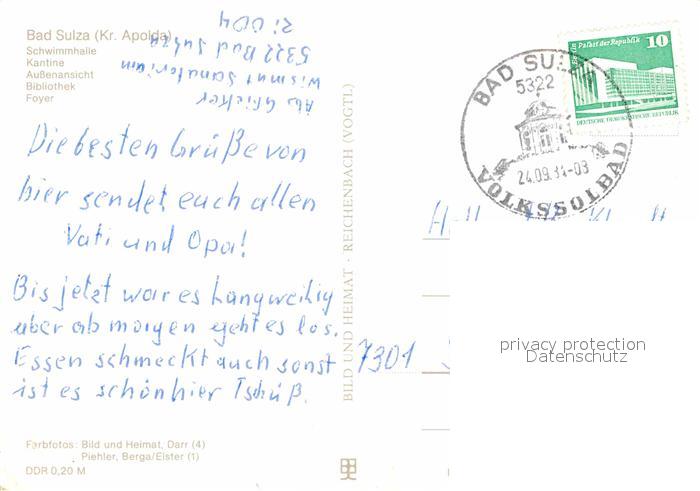 Bad Sulza (Kr. Apolda)
Schwimmhalle
Kantine
Außenansicht
Bibliothek
Foyer
Wismut Sanatorium
5322 Bad Sulza
Zi 004
Die besten Grüße von
hier sendet euch allen
Vati und Opa!
Bis jetzt war es Langweilig
aber ab morgen geht es los.
Essen schmeckt auch sonst
ist es schön hier Tschüß.
Farbfotos: Bild und Heimat, Darr (4)
Piehler, Berga/Elster (1)
DDR 0,20 M
BILD UND HEIMAT · REICHENBACH (VOGTL)
Palast der Republik
10
DEUTSCHE DEMOKRATISCHE REPUBLIK
BAD SULZA
5322
24.09.81-03
VOLKSSOLBAD
7301
privacy protection
Datenschutz